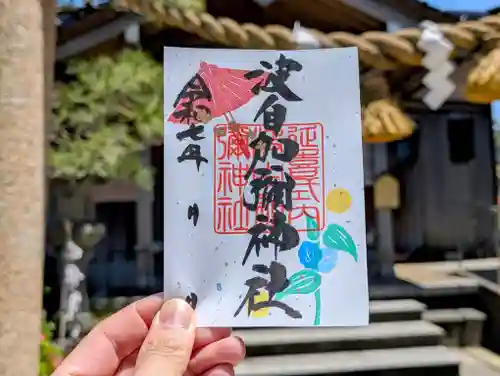 波自加彌神社
延喜式内
彌神社
令和七年 月 日